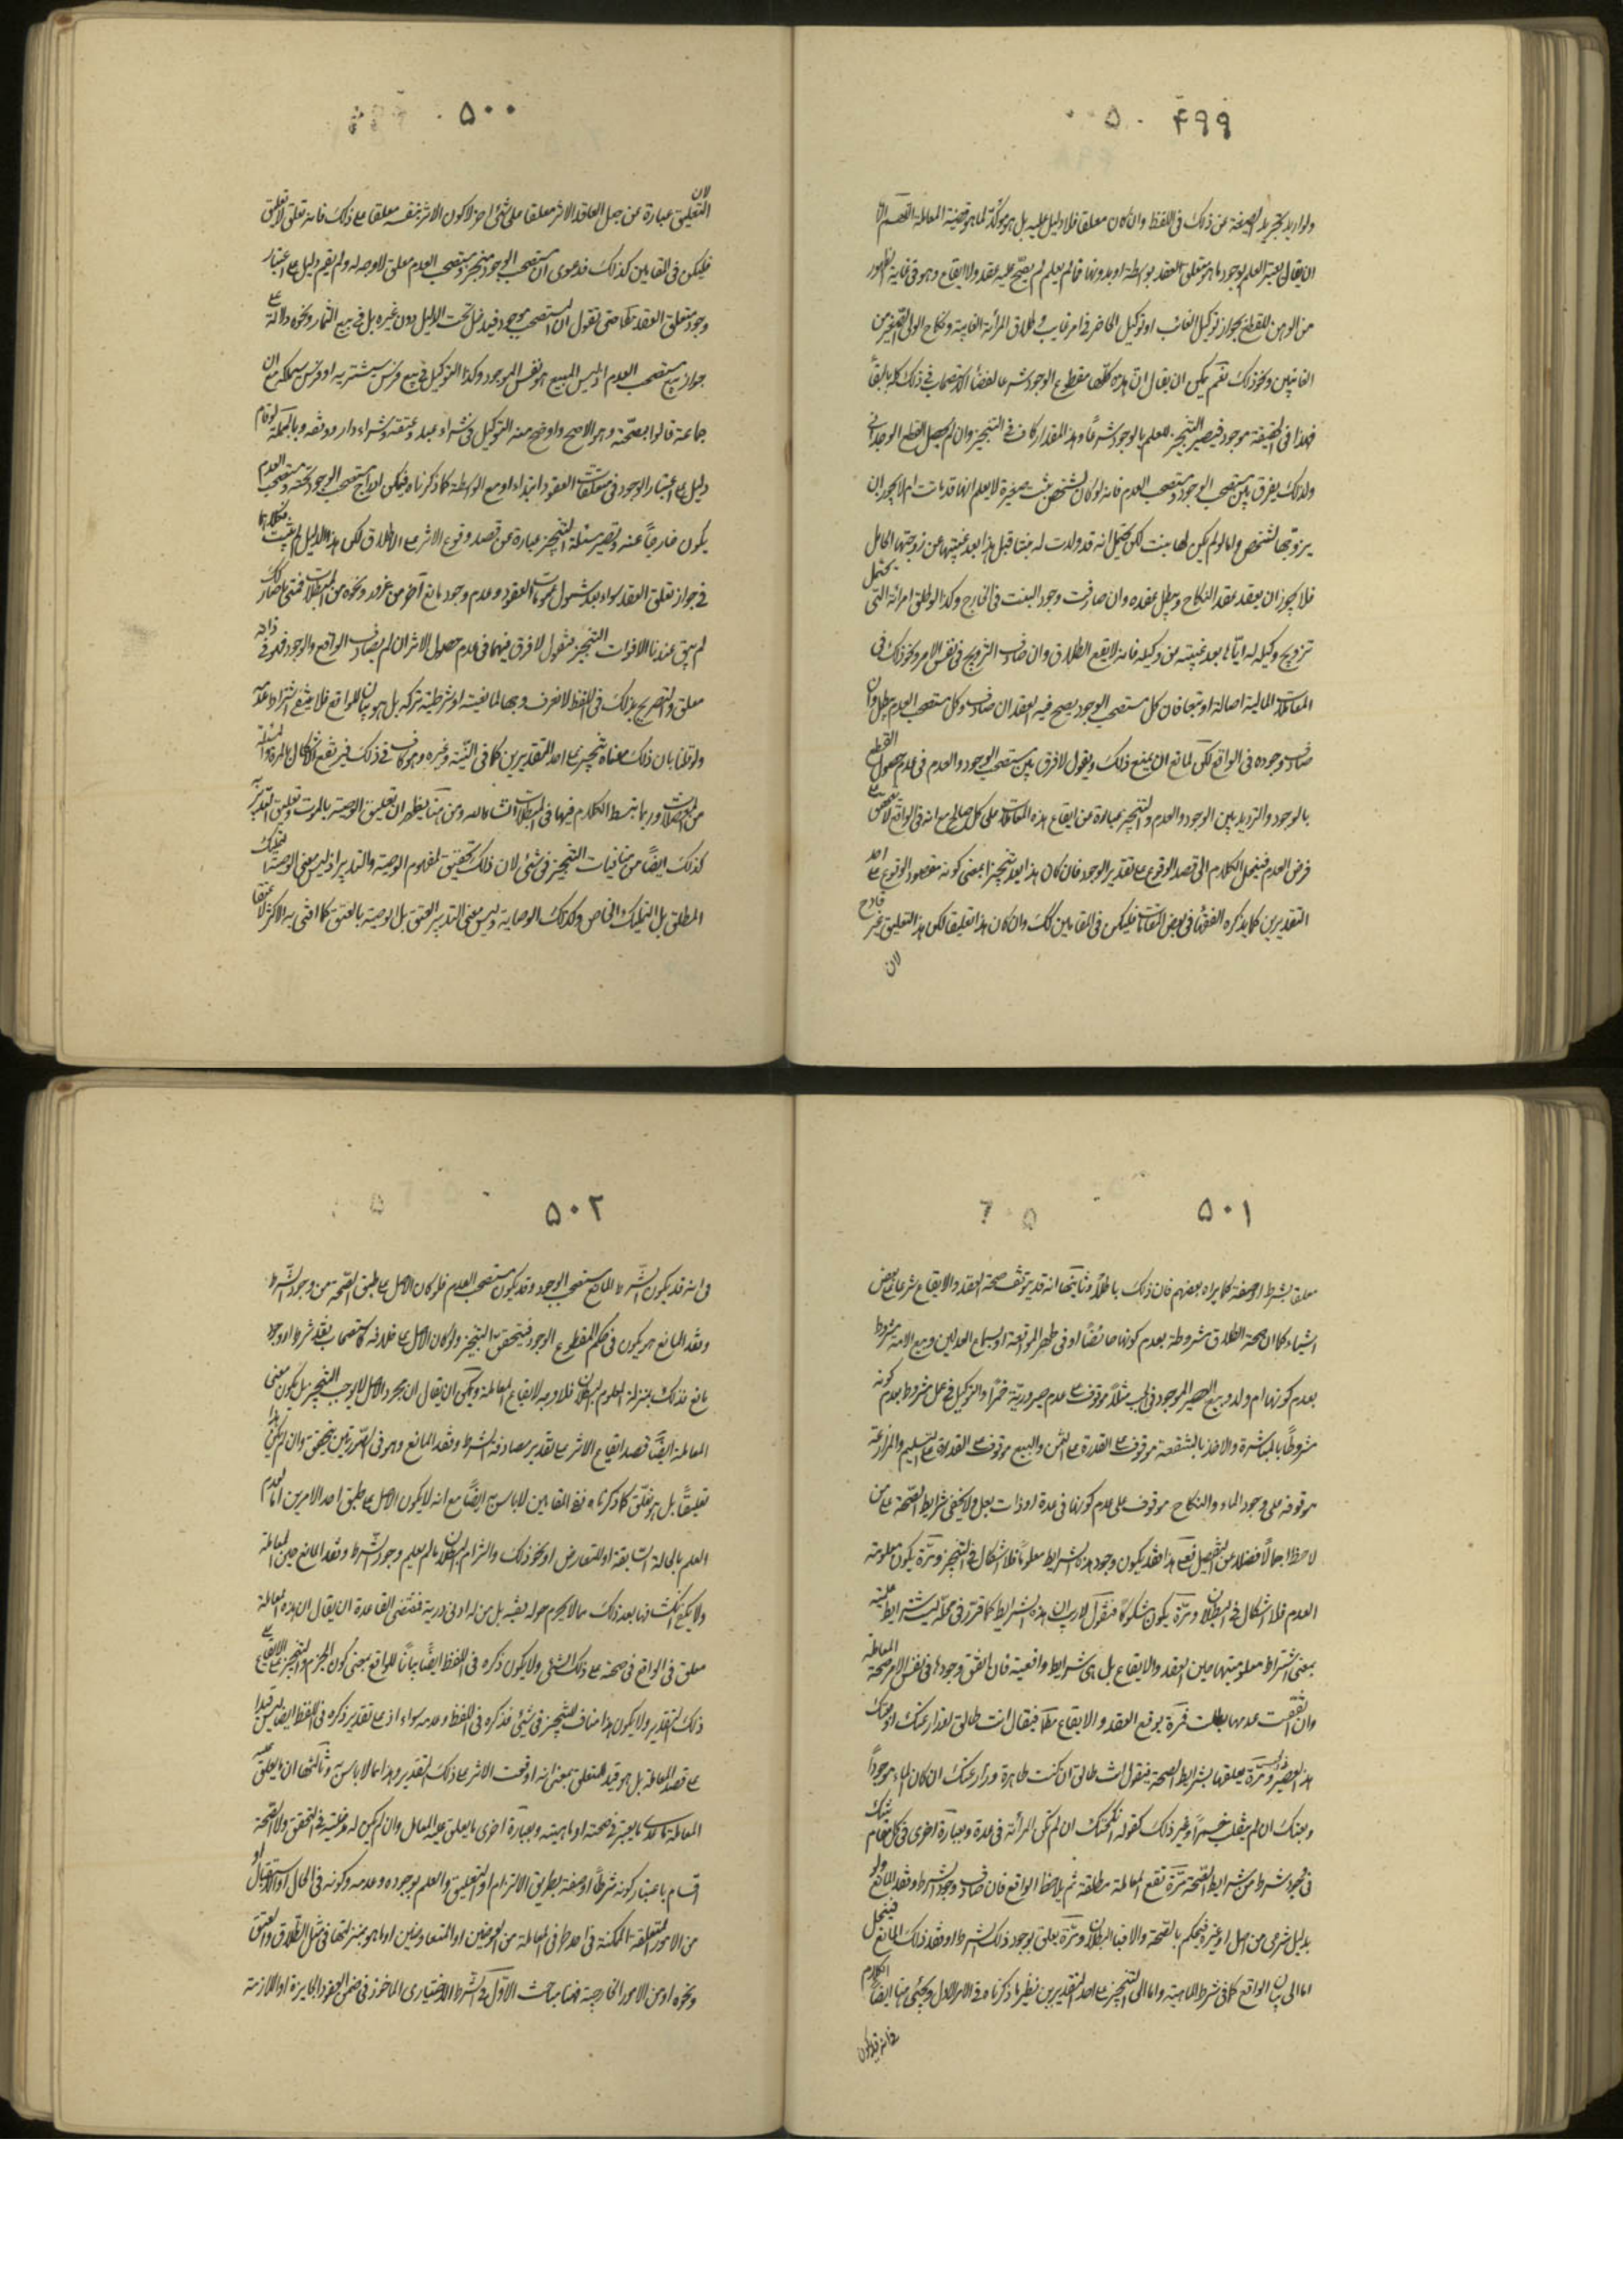 ۴۹۹
ولو اريد تجريد الصيغة عن ذلك في اللفظ وان كان معلقا فلا دليل عليه بل هو مؤكد لما هو قضية المعاملة اللهم الا
ان يقال يعتبر العلم بوجود ما هو متعلق العقد بواسطة او بدونها فما لم يعلم لم يصح عليه عقد ولا ايقاع وهو في غاية الظهور
من الوهن للقطع بجواز توكيل الغائب او توكيل الحاضر في امر غايب و طلاق المرأة الغايبة ونكاح الولي الصغيرين
الغائبين ونحو ذلك نعم يمكن ان يقال ان هذه كلها مقطوع الوجود شرعا لقضاء الاستصحاب في ذلك كله بالبقاء
فهذا في الحقيقة موجود فيصير التنجيز للعلم بالوجود شرعاً وهذا المقدار كاف في التنجيز وان لم يحصل القطع الوجداني
ولذلك يفرق بين مستصحب الوجود ومستصحب العدم فانه لو كان لشخص بنت صغيرة لا يعلم انها قد ماتت ام لا يجوز ان
يزوجها لشخص واما لو لم يكن لها بنت لكن يحتمل انه قد ولدت له بنتا قبل هذا بعد غيبتها عن زوجتها الحامل
فلا يجوز ان يعقد عقد النكاح ويبطل عقده وان صادفت وجود البنت في الخارج وكذا لو طلق امرأته التي يحتمل
تزويج وكيله له اياها بعد غيبته من وكيله فانه لا يقع الطلاق وان صادف التزويج في نفس الامر ونحو ذلك في
المعاملات المالية اصالة او تبعا فان كل مستصحب الوجود يصح فيه العقد ان صادف وكل مستصحب العدم يبطل وان
صادف وجوده في الواقع لكن لمانع ان يمنع ذلك ويقول لا فرق بين مستصحب الوجود والعدم في عدم حصول القطع
بالوجود والترديد بين الوجود والعدم والتنجيز عبارة عن ايقاع هذه المعاملات على كل حال مع انه في الواقع لا محض
فرض العدم فينحل الكلام الى قصد الوقوع على تقدير الوجود فان كان هذا يعد تنجيزا بمعنى كونه مقصود الوقوع على احد
التقديرين كما يذكره الفقهاء في بعض المقامات فليكن في المقامين كذلك وان كان هذا تعليقا لكن هذا التعليق غير قادح
لان
۵۰۰
لان
التعليق عبارة عن جعل العاقد الاثر معلقا على شيء اخر لا كون الاثر بنفسه معلقا على ذلك فانه تعلق لا تعليق
فليكن في المقامين كذلك فدعوى ان مستصحب الوجود منجز ومستصحب العدم معلق لا وجه له ولم يقم دليل على اعتبار
وجود متعلق العقد حتى نقول ان المستصحب موجود فيدخل تحت الدليل دون غيره بل في بيع الثمار ونحوه دلالة على
جواز بيع مستصحب العدم اذ ليس المبيع هو نفس الموجود وكذا التوكيل في بيع فرس سيشتريه او فرس سيملكه مع ان
جماعة قالوا بصحته وهو الاصح واوضح منه التوكيل في شراء عبد وعتقه وشراء دار ووقفه وبالجملة لو قام
دليل على اعتبار الوجود في متعلقات العقود ابتداء او مع الواسطة كما ذكرناه فيمكن ادراج مستصحب الوجود تحته ومستصحب العدم
يكون خارجاً عنه وتصير مسئلة التنجيز عبارة عن قصد وقوع الاثر على الاطلاق لكن هذا الدليل لم يثبت
في جواز تعلق العقد سواء بعد شمول عمومات العقود وعدم وجود مانع آخر من غرر ونحوه من المبطلات
لم يبق عندنا الا فوات التنجيز فنقول لا فرق فيهما في عدم حصول الاثر ان لم يصادف الواقع والوجود فهو في ذاته
معلق والتصريح بذلك في اللفظ
ولو قلنا بان ذلك معناه تنجيز على احد التقديرين كما في النية وغيره وهو كاف في ذلك
من المعضلات وربما نبسط الكلام فيها في المبطلات انشاء الله ومن هنا يظهر ان تعليق الوصية بالموت وتعليق التدبير
كذلك ايضا من منافيات التنجيز في شيء لان ذلك تحقيق لمفهوم الوصية والتدبير اذ ليس معنى الوصية التمليك
المطلق بل التمليك الخاص وكذلك الوصاية وليس معنى التدبير العتق بل الوصية بالعتق كما افتى به الاكثر
۵۰۱
معلقا بشرط او صفة كما يراه بعضهم فان ذلك باطل وثانيها انه قد يتوقف صحة العقد والايقاع شرعا على بعض
اشياء كما ان صحة الطلاق مشروطة بعدم كونها حائضا او في طهر المواقعة او بسماع العدلين وبيع الامة مشروط
بعدم كونها ام ولد وبيع العصير الموجود في الحب مثلاً موقوف على عدم صيرورته خمراً والتوكيل في عمل مشروط بعدم كونه
مشروطاً بالمباشرة والاخذ بالشفعة موقوف على القدرة على الثمن والبيع موقوف على القدرة على التسليم والمزارعة
موقوفة على وجود الماء والنكاح موقوف على عدم كونها في عدة او ذات بعل ولا يخفى شرايط الصحة على من
لاحظ اجمالاً فضلا عن التفصيل فعلى هذا فقد يكون وجود هذه الشرايط معلوماً فلا اشكال في التنجيز ومرة يكون معلومة
العدم فلا اشكال في البطلان ومرة يكون مشكوكا فنقول لا ريب ان هذه الشرايط كما قرر في محله ليست شرايط علمية
بمعنى اشتراط معلوميتها حين العقد والايقاع بل هي شرايط واقعية فان اتفق وجودها في نفس الامر صحت المعاملة
وان اتفقت عدمها بطلت فمرة يوقع العقد والايقاع مطلقا فيقال انت طالق
هذا العصير ومرة يعلقها بشرايط الصحة فيقول انت طالق ان كنت طاهرة وزارعتك ان كان الماء موجوداً
وبعتك ان لم ينقلب خمراً وغير ذلك كقوله انكحتك ان لم تكن المرأة في عدة وبعبارة اخرى في كل مقام شك
في وجود شرط من شرايط الصحة مرة تقع المعاملة مطلقة ثم يلاحظ الواقع فان صادف وجود الشرط وفقد المانع ولو
بدليل شرعي من اصل او غيره فيحكم بالصحة والا فبالبطلان ومرة يعلق بوجود ذلك الشرط او فقد ذلك المانع فينحل
اما الى بيان الواقع كما في شرط الماهية واما الى التنجيز على احد التقديرين نظير ما ذكرناه في الامر الاول ويجيء هنا ايضا الكلام
فانه قد يكون
۵۰۲
في انه قد يكون الشرط والمانع مستصحب الوجود وقد يكون مستصحب العدم فلو كان الاصل على طبق الصحة من وجود الشرط
وفقد المانع هو يكون في حكم المقطوع الوجود فيتحقق التنجيز ولو كان الاصل على خلافه كاستصحاب فقد شرط او وجود
مانع فذلك بمنزلة المعلوم البطلان فلا وجه لايقاع المعاملة ويمكن ان يقال ان مجرد الاصل لا يوجب التنجيز بل يكون معنى
المعاملة ايضاً قصد ايقاع الاثر على تقدير مصادفة الشرط وفقد المانع وهو في الصورتين يتحقق وان لم يكن هذا
تعليقاً بل هو تعلق كما ذكرناه ففي المقامين لا باس به ايضاً مع انه لا يكون الاصل على طبق احد الامرين اما لعدم
العلم بالحالة السابقة او للتعارض او نحو ذلك والتزام البطلان ما لم يعلم وجود الشرط وفقد المانع حين المعاملة
ولا يكفي انكشافها بعد ذلك مما لا يحوم حوله فقيه بل من له ادنى دربة فمقتضى القاعدة ان يقال ان هذه المعاملة
معلق في الواقع في صحته على ذلك الشيء ولا يكون ذكره في اللفظ ايضاً بياناً للواقع بمعنى كون الجزم والتنجيز على الايقاع على
ذلك التقدير ولا يكون هذا مناف للتنجيز في شيء فذكره في اللفظ وعدمه سواء اذ على تقدير ذكره في اللفظ ايضا ليس قيدا
على قصد المعاملة بل هو قيد للمتعلق بمعنى انه اوقعت الاثر على ذلك التقدير وهذا مما لا باس به وثالثها ان ما يعلق عليه
المعاملة ما عدى ما يعتبر في صحته او ماهيته وبعبارة اخرى ما يعلق عليه المعامل وان لم يكن له مدخلية في التحقق ولا الصحة
اقسام باعتبار كونه شرطاً او صفة بطريق الالتزام او التعليق والعلم بوجوده وعدمه وكونه في الحال او الاستقبال او
من الامور المتعلقة الممكنة في احد طرفي المعاملة من العوضين او المتعاوضين او ما هو بمنزلتها في مثل الطلاق والعتق
ونحوه او من الامور الخارجية فهنا مباحث الاول في الشرط الاختياري المأخوذ في ضمن العقود الجايزة او اللازمة